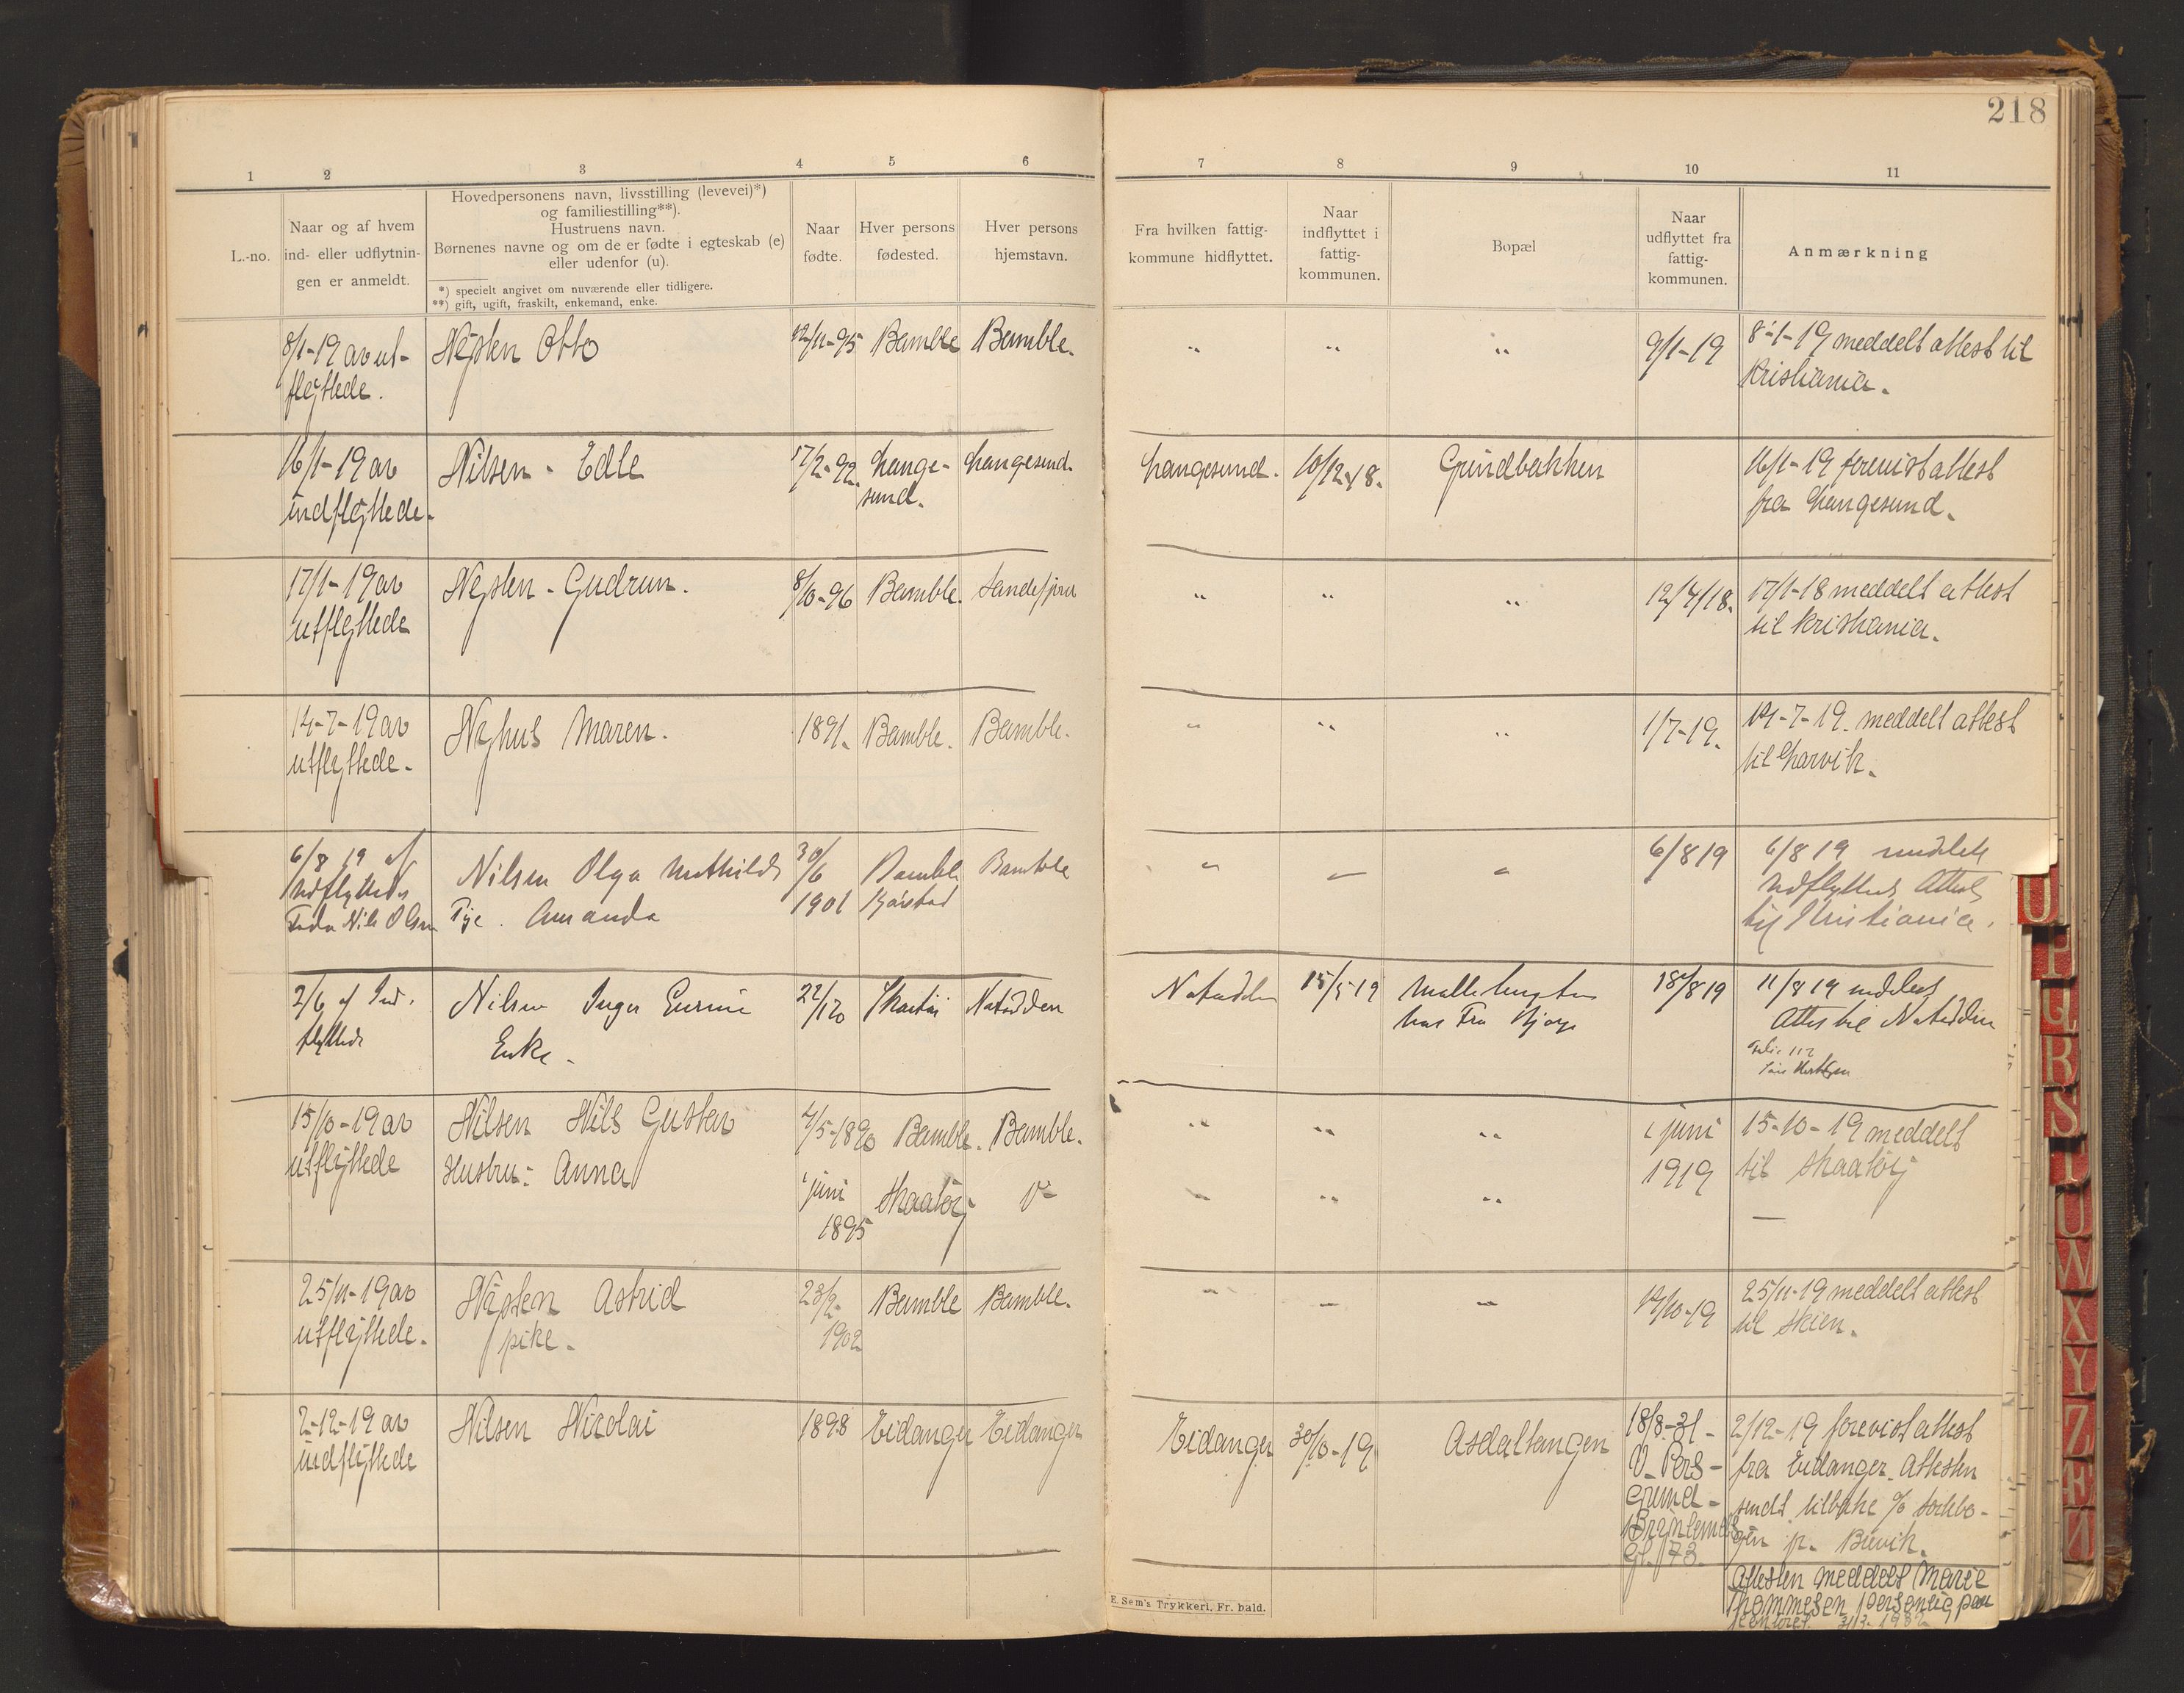 218
1 2 3 4 5 6 7 8 9 10 11
L.-no.
Naar og af hvem
ind- eller udflytnin-
gen er anmeldt.
Hovedpersonens navn, livsstilling (levevei)*)
og familiestilling**).
Hustruens navn.
Børnenes navne og om de er fødte i egteskab (e)
eller udenfor (u).
*) specielt angivet om nuværende eller tidligere.
**) gift, ugift, fraskilt, enkemand, enke.
Naar
fødte.
Hver persons
fødested.
Hver persons
hjemstavn.
Fra hvilken fattig-
kommune hidflyttet.
Naar
indflyttet i
fattig-
kommunen.
Bopæl
Naar
udflyttet fra
fattig-
kommunen.
Anmærkning
8/1-19 av ut-
flyttede.
Otto
12/11-95
Bamble
Bamble.
" " "
9/1-19
8-1-19 meddelt attest til
Kristiania.
16/1-19 av
indflyttede.
Nilsen - Edle
17/2-92.
Lange-
sund.
Langesund.
Langesund.
10/12-18.
Grindbakken
16/1-19 forevist attest
fra Langesund.
17/1-19 av
utflyttede
Gudrun.
8/10-96
Bamble.
Sandefjord
" " "
12/7/18.
17/1-18 meddelt attest
til Kristiania.
14-7-19 av
utflyttede.
Nyhus Maren.
1891.
Bamble.
Bamble.
" " "
1/7-19.
14-7-19. meddelt attest
til Larvik.
6/8 19 af
Udflyttedes
Fader Nils Olsen
Nilsen Olga Mathilde
Pige. Amanda
30/6
1901
Bamble
Bamble
" " "
6/8 19
6/8 19 meddelt
Udflyttede Attest
til Kristiania.
2/6 af Ind-
flyttede
Nilsen Inger
Enke.
22/120
Notodden
Notodden
15/5 19
hos Fru
18/8 19
11/8 19 meddelt
Attest til Notodden
15/10-19 av
utflyttede
Nilsen Nils Gustav
Hustru: Anna
4/5-1890
Bamble.
Bamble.
juni
1895
Skaatöy
" " "
i juni
1919
15-10-19 meddelt
til Skaatöy
" " "
25/11-19 av
utflyttede.
Astrid
pike.
23/2-
1902
Bamble
Bamble.
" " "
14/10-19
25/11-19 meddelt attest
til Skien.
2-12-19 av
indflyttede
Nilsen Nicolai
1898
Eidanger
Eidanger
Eidanger
30/10-19
Asdaltangen
18/8-31-
V. Pors-
grund-
2/12-19 forevist attest
fra Eidanger. Attesten
sendt tilbake
Attesten meddelt Marie
Thommesen personlig paa
kontoret
E. Sem's Trykkeri, Fr. hald.
U
P
Q
R
S
T
U
W
X
Y
Z
Æ
Ø